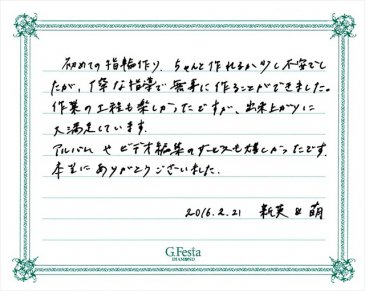 初めての指輪作り、ちゃんと作れるか少し不安でし
たが、丁寧な指導で無事に作ることができました。
作業の工程も楽しかったですが、出来上がりに
大満足しています。
アルバムやビデオ編集のサービスも嬉しかったです。
本当にありがとうございました。
2016.2.21 新英 & 萌
G.Festa
DIAMOND